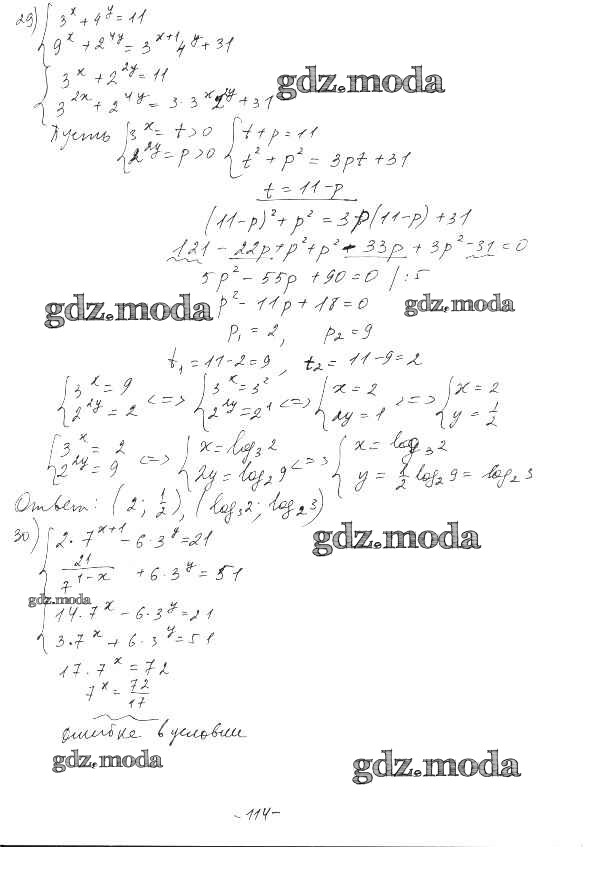 29) { 3^x + 4^y = 11
9^x + 2^{4y} = 3^{x+1} 4^y + 31
{ 3^x + 2^{2y} = 11
gdz.moda
3^{2x} + 2^{4y} = 3·3^x 2^{2y} + 31
Пусть { 3^x = t > 0 { t + p = 11
2^{2y} = p > 0 t^2 + p^2 = 3pt + 31
t = 11 - p
(11-p)^2 + p^2 = 3p(11-p) + 31
121 - 22p + p^2 + p^2 - 33p + 3p^2 - 31 = 0
5p^2 - 55p + 90 = 0 /:5
gdz.moda p^2 - 11p + 18 = 0 gdz.moda
p_1 = 2, p_2 = 9
t_1 = 11-2 = 9, t_2 = 11-9 = 2
{ 3^x = 9 <=> { 3^x = 3^2 <=> { x = 2 <=> { x = 2
2^{2y} = 2 2^{2y} = 2^1 2y = 1 y = 1/2
{ 3^x = 2 <=> { x = log_3 2 <=> { x = log_3 2
2^{2y} = 9 2y = log_2 9 y = 1/2 log_2 9 = log_2 3
Ответ: (2; 1/2), (log_3 2; log_2 3)
30) { 2·7^{x+1} - 6·3^y = 21
gdz.moda
21/7^{1-x} + 6·3^y = 51
gdz.moda
{ 14·7^x - 6·3^y = 21
3·7^x + 6·3^y = 51
17·7^x = 72
7^x = 72/17
ошибка в условии
gdz.moda gdz.moda
- 114 -